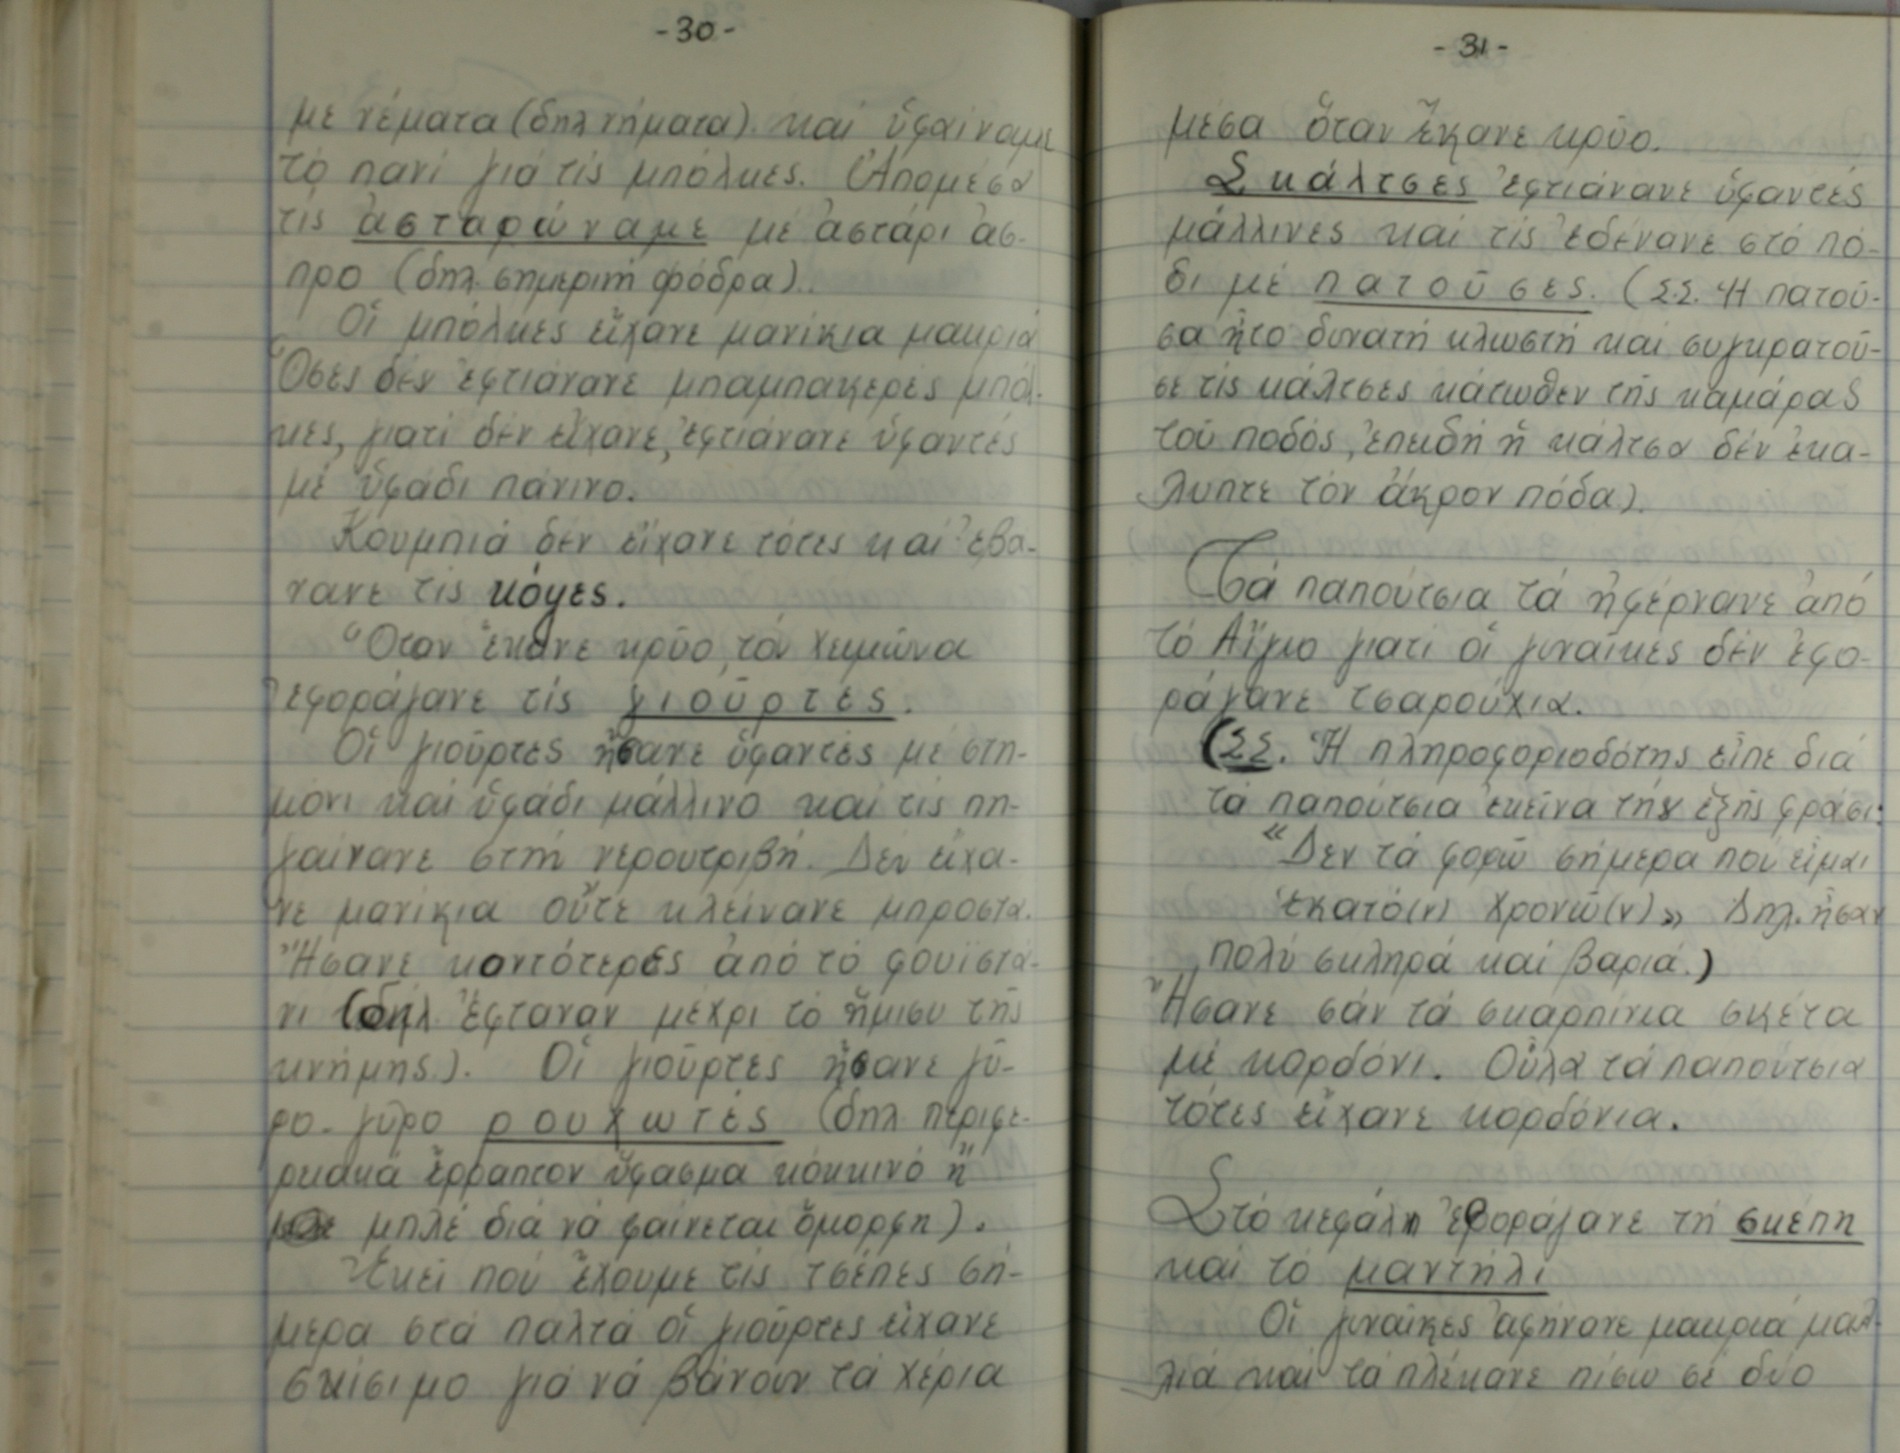 -30-
με νέματα (δηλ νήματα). καί ὑφαίναμε
τό πανί γιά τίς μπόλκες. (Ἀπομέσα
τίς ἀσταρώναμε μέ ἀστάρι ἀσ-
προ (δηλ. σημερινή φόδρα).
Οἵ μπόλκες εἴχανε μανίκια μακριά
Ὅσες δέν ἐφτιάνανε μπαμπακερές μπόλ-
κες, γιατί δέν εἴχανε, ἐφτιάνανε ὑφαντές
μέ ὑφάδι πάνινο.
Κουμπιά δέν εἴχανε τότες καί ἐβά-
νανε τίς κόψες.
Ὅταν ἔκανε κρῦο, τόν χειμῶνα
ἐφοράγανε τίς γιοῦρτες.
Οἵ γιοῦρτες ἤσανε ὑφαντές μέ στη-
μόνι καί ὑφάδι μάλλινο καί τίς πη-
γαίνανε στή νεροτριβή. Δέν εἴχα-
νε μανίκια οὔτε κλείνανε μπροστά.
Ἤσανε κοντότερες ἀπό τό φουϊστά-
νι (δηλ. ἔφταναν μέχρι τό ἥμισυ τῆς
κνήμης). Οἵ γιοῦρτες ἤσανε γῦ-
ρο-γῦρο ρουχωτές (δηλ περιφε-
ρειακά ἔρραπτον ὕφασμα κόκκινο ἤ
μπλέ διά νά φαίνεται ὄμορφη).
Ἐκεῖ πού ἔχουμε τίς τσέπες σή-
μερα στά παλτά οἵ γιοῦρτες εἴχανε
σκίσιμο γιά νά βάνουν τά χέρια
-31-
μέσα ὅταν ἔκανε κρῦο.
Σκάλτσες ἐφτιάνανε ὑφαντές
μάλλινες καί τίς ἐδένανε στό πό-
δι μέ πατοῦσες. (Σ.Σ. Ἡ πατοῦ-
σα ἦτο δυνατή κλωστή καί συγκρατοῦ-
σε τίς κάλτσες κάτωθεν τῆς καμάρας
τοῦ ποδός, ἐπειδή ἥ κάλτσα δέν ἐκά-
λυπτε τόν ἄκρον πόδα).
Τά παπούτσια τά ἠφέρνανε ἀπό
τό Αἴγιο γιατί οἵ γυναῖκες δέν ἐφο-
ράγανε τσαρούχια.
(ΣΣ. Ἡ πληροφοριοδότης εἶπε διά
τά παπούτσια ἐκεῖνα τήν ἑξῆς φράσι:
"Δεν τά φορῶ σήμερα πού εἶμαι
ἑκατό(ν) χρονῶ(ν)» Δηλ. ἦσαν
πολύ σκληρά καί βαριά.)
Ἤσανε σάν τά σκαρπίνια σκέτα
μέ κορδόνι. Οὗλα τά παπούτσια
τότες εἴχανε κορδόνια.
Στό κεφάλι ἐφοράγανε τή σκέπη
καί τό μαντήλι
Οἵ γυναῖκες ἀφήνανε μακριά μαλ-
λιά καί τά πλέκανε πίσω σέ δύο